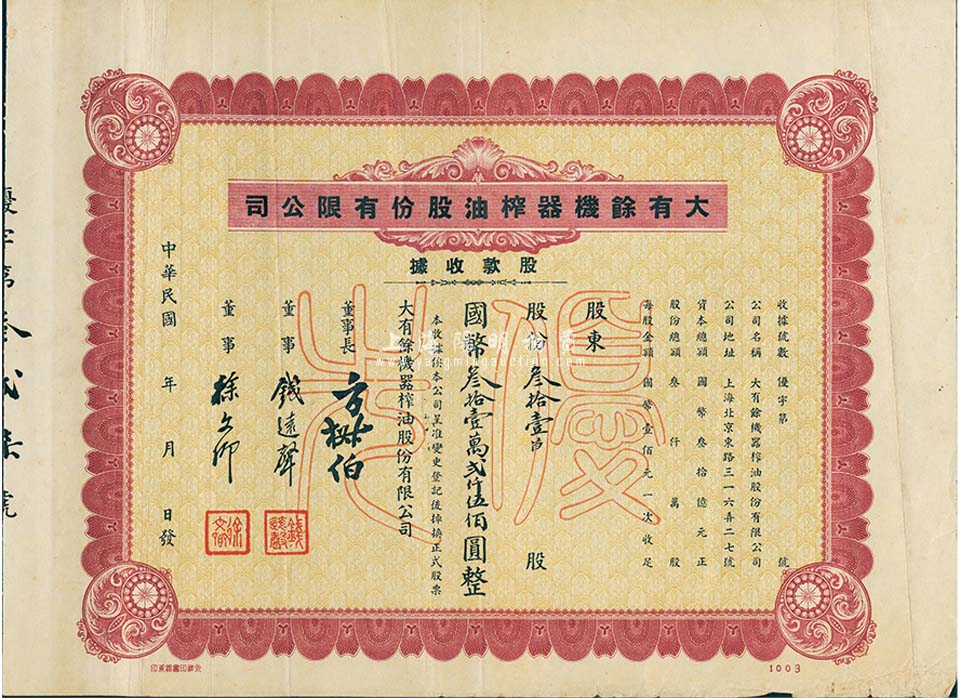 大有餘機器榨油股份有限公司
股款收據
收據號數 優字第 號
公司名稱 大有餘機器榨油股份有限公司
公司地址 上海北京東路三一六弄二七號
資本總額 國幣叁拾億元正
股份總額 叁仟萬股
每股金額 國幣壹佰元一次收足
股東
股份 叁拾壹 股
國幣叁拾壹萬弍仟伍佰圓整
本收據俟本公司呈准變更登記後掉換正式股票
大有餘機器榨油股份有限公司
董事長 方椒伯
董事 錢遠聲
董事 徐文卿
中華民國 年 月 日發
優先
上海陽明拍賣
www.yangmingauctining.com
1003